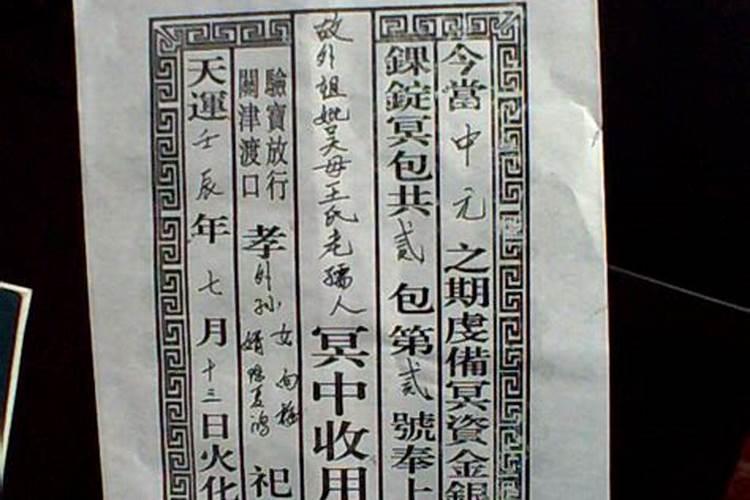 今當中元之期虔備冥資金銀
錁錠冥包共貳包第貳號奉上
故外祖妣吴母王氏老孺人冥中收用
驗寶放行
關津渡口
孝外孫女婿祀
天運壬辰年七月十三日火化